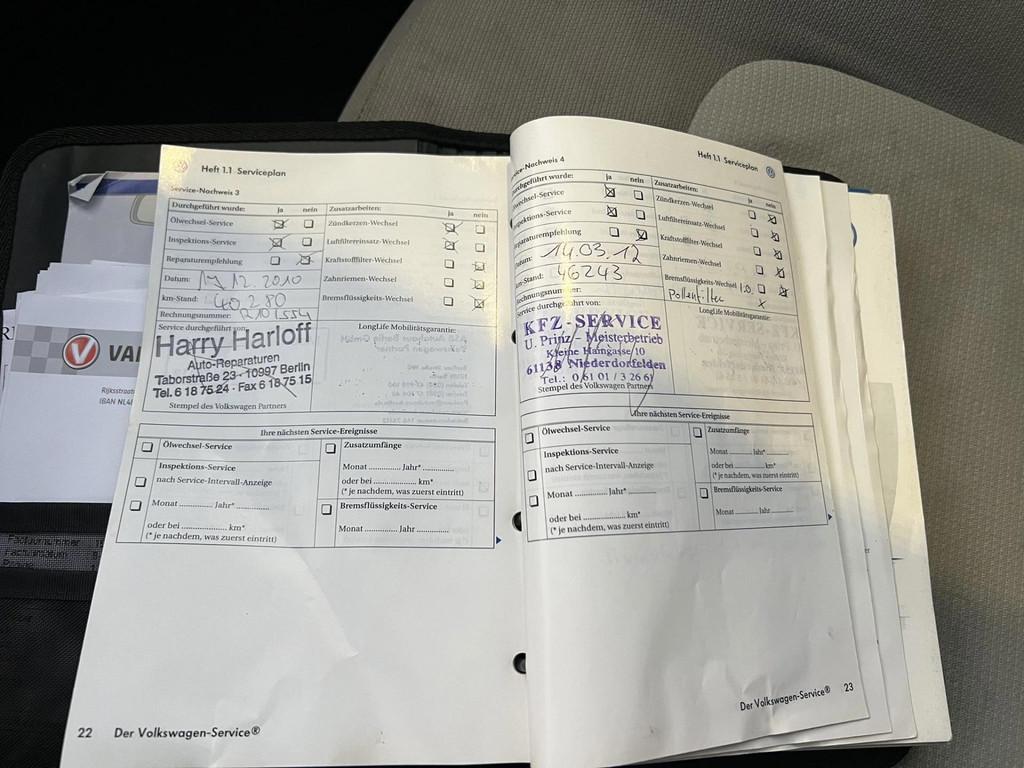 Heft 1.1 Serviceplan
Service-Nachweis 3
Durchgeführt wurde: ja nein Zusatzarbeiten: ja nein
Ölwechsel-Service Zündkerzen-Wechsel
Inspektions-Service Luftfiltereinsatz-Wechsel
Reparaturempfehlung Kraftstofffilter-Wechsel
Datum: 12.2010 Zahnriemen-Wechsel
km-Stand: 40280 Bremsflüssigkeits-Wechsel
Rechnungsnummer:
Service durchgeführt von: LongLife Mobilitätsgarantie:
Harry Harloff
Auto-Reparaturen
Taborstraße 23 - 10997 Berlin
Tel. 6 18 75 24 · Fax 6 18 75 15
Stempel des Volkswagen Partners
Ihre nächsten Service-Ereignisse
Ölwechsel-Service Zusatzumfänge
Inspektions-Service
nach Service-Intervall-Anzeige Monat ............ Jahr* ............
oder bei ............ km*
(* je nachdem, was zuerst eintritt)
Monat ............ Jahr* ............ Bremsflüssigkeits-Service
oder bei ............ km* Monat ............ Jahr ............
(* je nachdem, was zuerst eintritt)
22 Der Volkswagen-Service®
Heft 1.1 Serviceplan
Service-Nachweis 4
Durchgeführt wurde: ja nein Zusatzarbeiten: ja nein
Ölwechsel-Service Zündkerzen-Wechsel
Inspektions-Service Luftfiltereinsatz-Wechsel
Reparaturempfehlung Kraftstofffilter-Wechsel
Datum: 14.03.12 Zahnriemen-Wechsel
km-Stand: 46243 Bremsflüssigkeits-Wechsel
Rechnungsnummer: Pollenfilter x
Service durchgeführt von: LongLife Mobilitätsgarantie:
KFZ-SERVICE
U. Prinz - Meisterbetrieb
Kleine Haingasse 10
61138 Niederdorfelden
Tel.: 0 61 01 / 3 26 6
Stempel des Volkswagen Partners
Ihre nächsten Service-Ereignisse
Ölwechsel-Service Zusatzumfänge
Inspektions-Service
nach Service-Intervall-Anzeige Monat ............ Jahr* ............
oder bei ............ km*
(* je nachdem, was zuerst eintritt)
Monat ............ Jahr* ............ Bremsflüssigkeits-Service
oder bei ............ km* Monat ............ Jahr ............
(* je nachdem, was zuerst eintritt)
Der Volkswagen-Service® 23
VAN
Rijksstraat
IBAN NL4
Factuurnummer
Factuurdatum